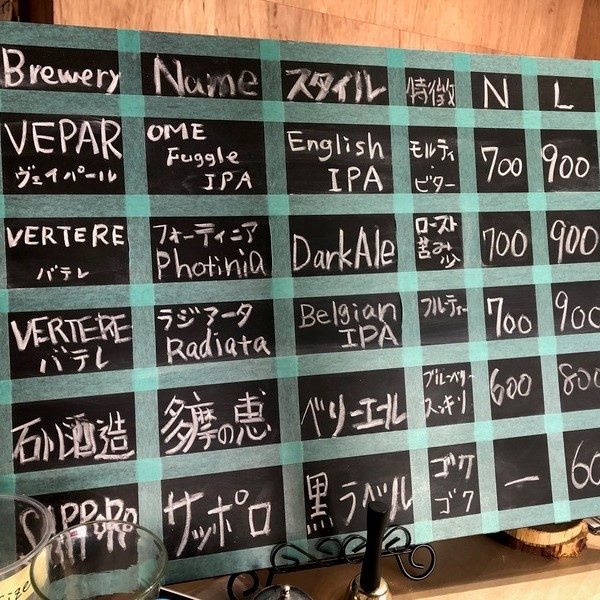 Brewery Name スタイル 特徴 N L
VEPAR
ヴェイパール
OME
Fuggle
IPA
English
IPA
モルティ
ビター
700 900
VERTERE
バテレ
フォーティニア
Photinia
DarkAle
ロースト
苦み
少
700 900
VERTERE
バテレ
ラジアータ
Radiata
Belgian
IPA
フルティー
700 900
石川酒造 多摩の恵 ペリーエール
ブルーベリー
スッキリ
600 800
SAPPORO サッポロ 黒ラベル
ゴク
ゴク
— 60